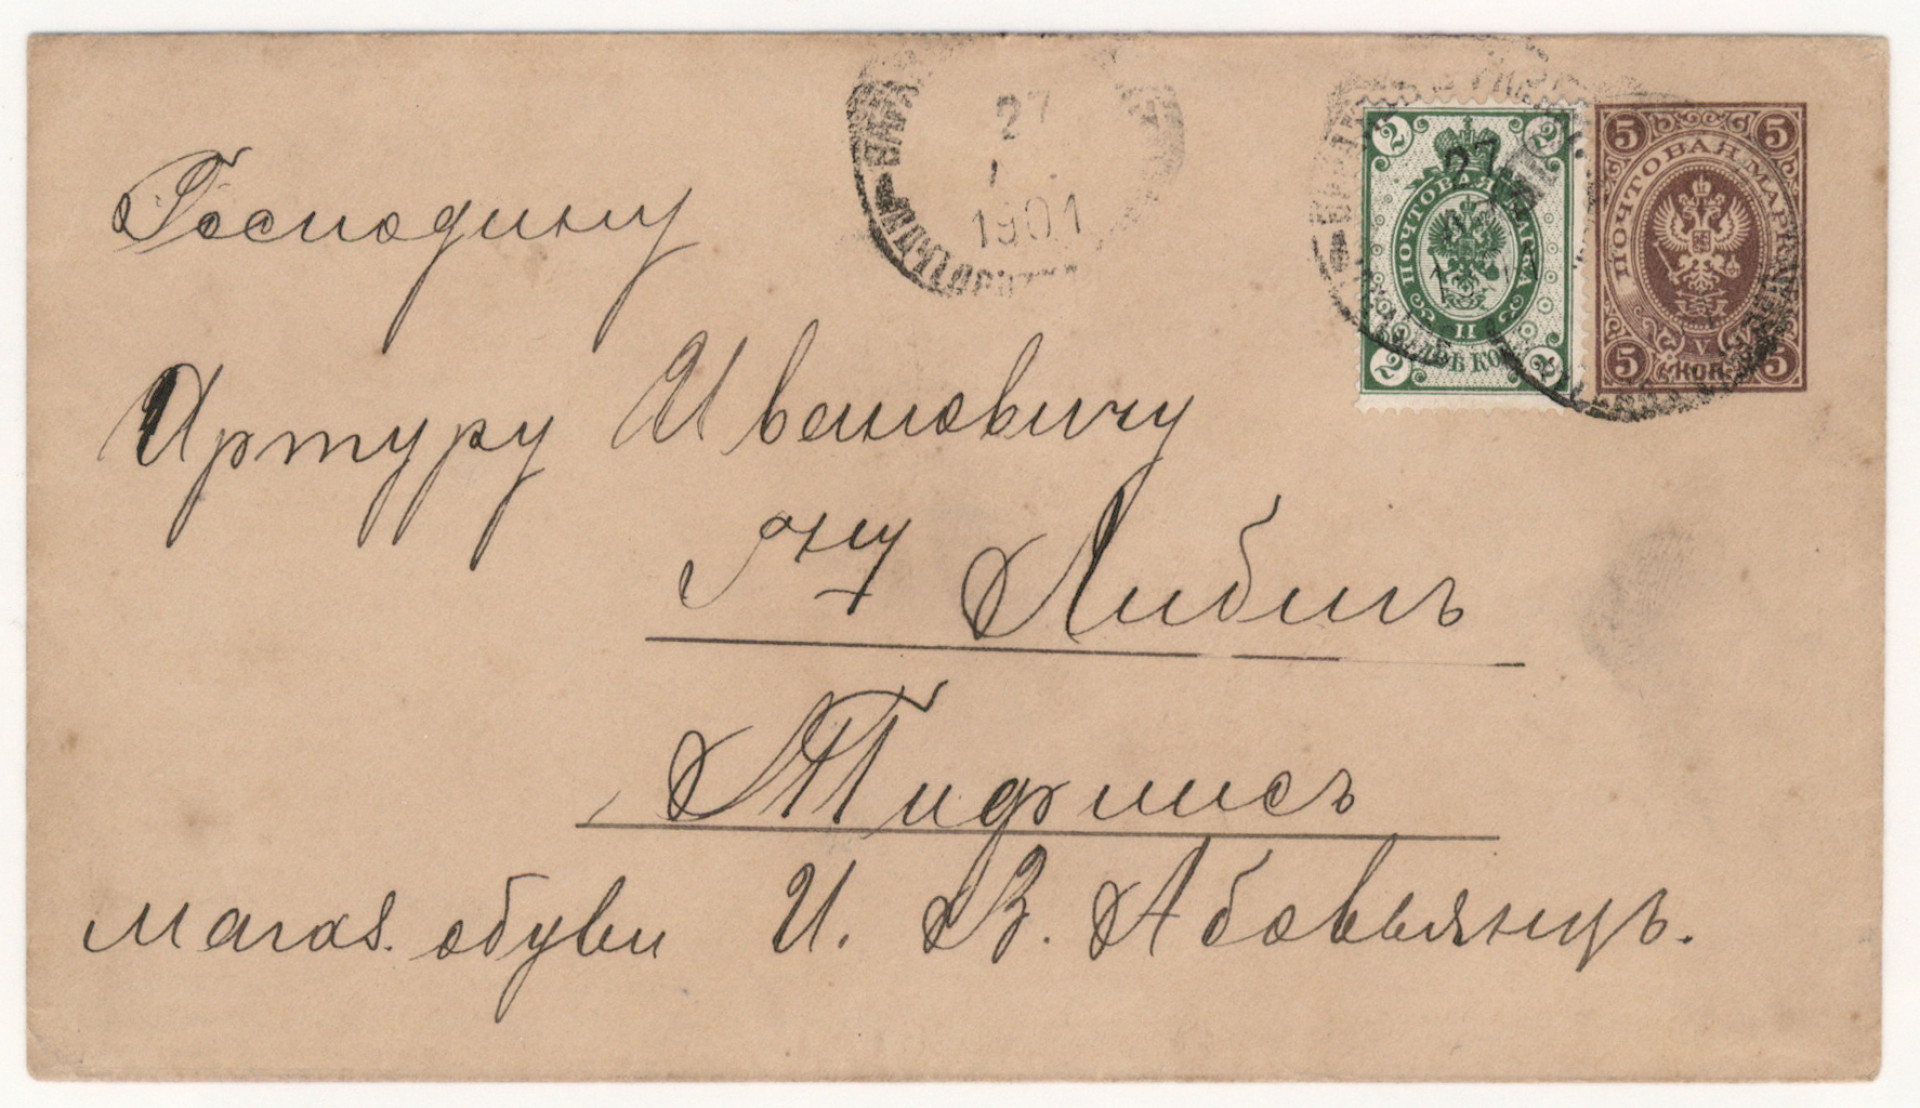 27
1901
2 2
ПОЧТОВАЯ МАРКА
II
2 ДВѢ КОП. 2
27
5 5
ПОЧТОВАЯ МАРКА
V
5 КОП. 5
Господину
Артуру Ивановичу
Гну Либигъ
Тифлисъ
Магаз. обуви И. В. Абовьянцъ.